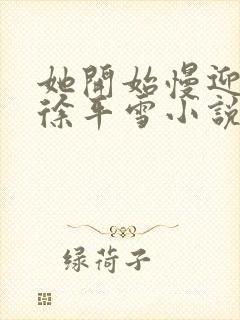 她開始慢迎
徐平雪小說
绿荷子